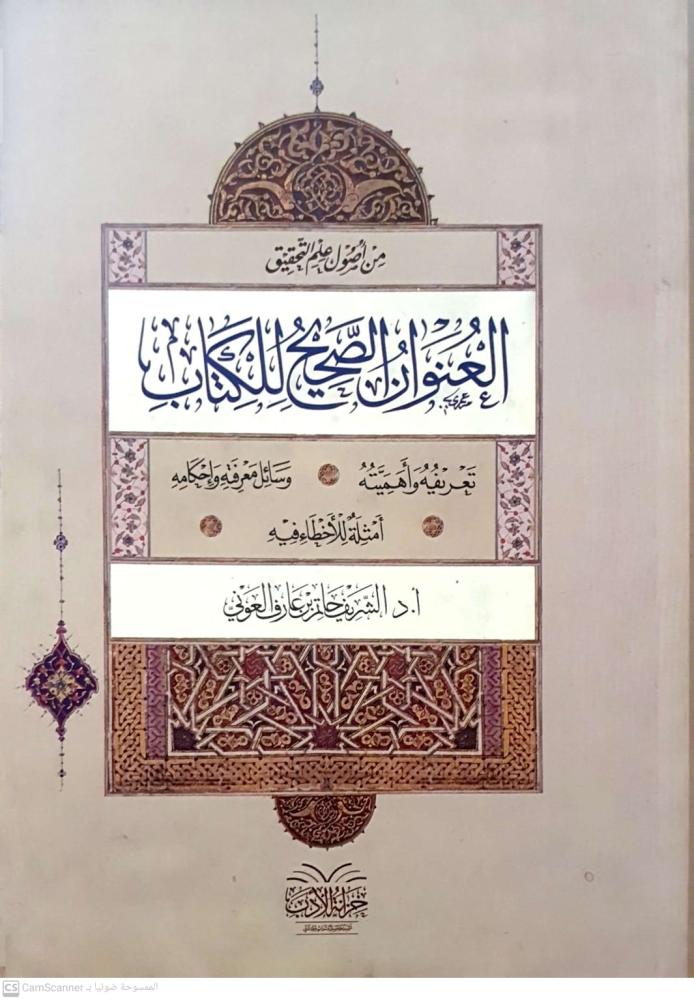 مِنْ أُصُولِ عِلْمِ التَّحْقِيقِ
العُنْوَانُ الصَّحِيحُ لِلْكِتَابِ
تَعْرِيفُهُ وَأَهَمِّيَّتُهُ وَسَائِلُ مَعْرِفَتِهِ وَإِحْكَامِهِ
أَمْثِلَةٌ لِلْأَخْطَاءِ فِيهِ
أ.د الشَّرِيفُ حَاتِمُ بْنُ عَارِفٍ العَوْنِيُّ
خِزَانَةُ الأَدَبِ
CS CamScanner الممسوحة ضوئيا بـ